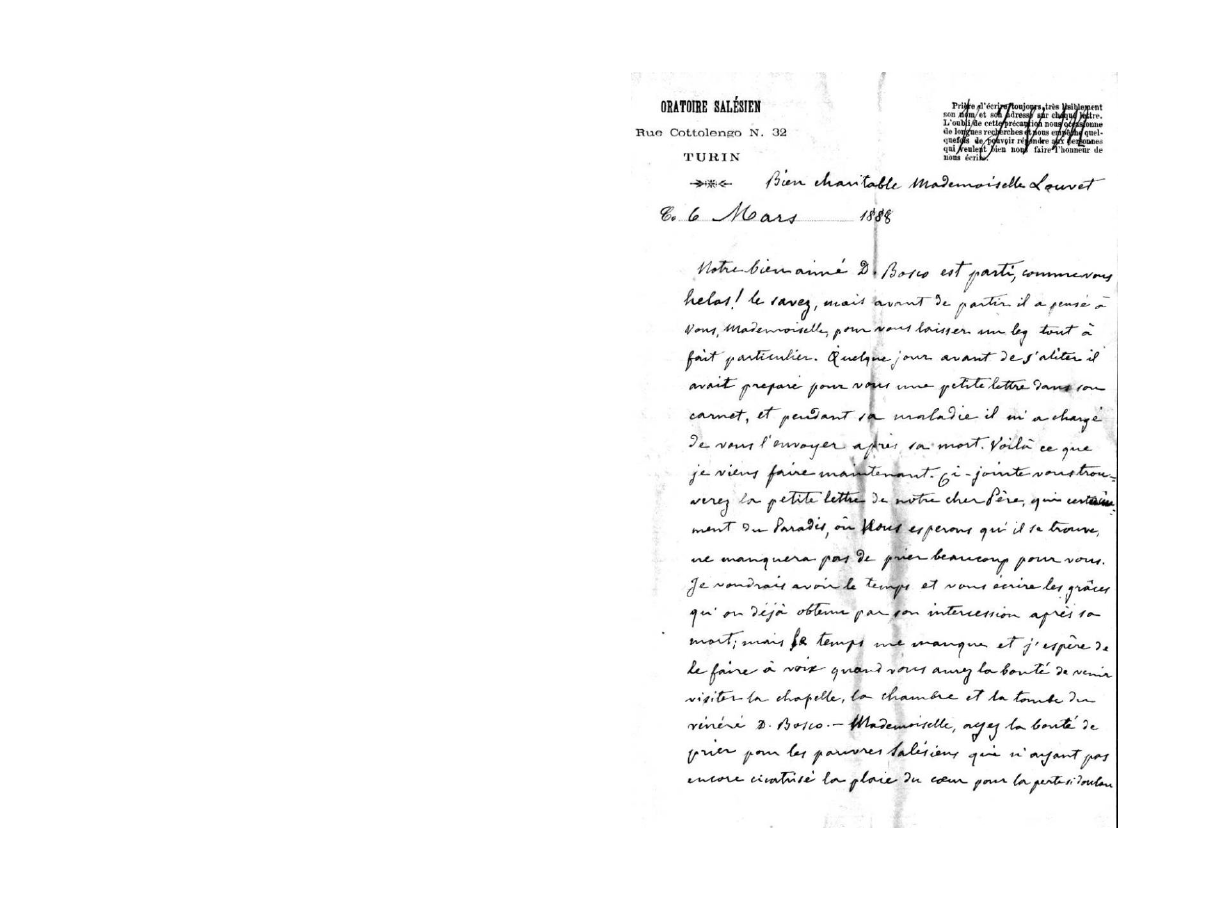 ORATOIRE SALÉSIEN
Rue Cottolengo N. 32
TURIN
Prière d'écrire toujours très lisiblement
son nom et son adresse sur chaque lettre.
L'oubli de cette précaution nous occasionne
de longues recherches et nous empêche quel-
quefois de pouvoir répondre aux personnes
qui veulent bien nous faire l'honneur de
nous écrire.
Bien charitable Mademoiselle Louvet
6 Mars 1888
Notre bien aimé D. Bosco est parti, comme vous
helas! le savez, mais avant de partir il a pensé à
Vous, Mademoiselle, pour vous laisser un leg tout à
fait particulier. Quelque jour avant de s'aliter il
avait preparé pour vous une petite lettre dans son
carnet, et pendant sa maladie il m'a chargé
de vous l'envoyer après sa mort. Voilà ce que
je viens faire maintenant. Çi-jointe vous trou-
verez la petite lettre de notre cher Père, qui certaine-
ment du Paradis, où Nous esperons qu'il se trouve,
ne manquera pas de prier beaucoup pour vous.
Je voudrais avoir le temps et vous écrire les grâces
qu'on déjà obtenu par son intercession après sa
mort; mais le temps me manque et j'espère de
le faire à voix quand vous aurez la bonté de venir
visiter la chapelle, la chambre et la tombe du
vénéré D. Bosco.— Mademoiselle, ayez la bonté de
prier pour les pauvres Salésiens qui n'ayant pas
encore cicatrisé la plaie du cœur pour la perte si doulou